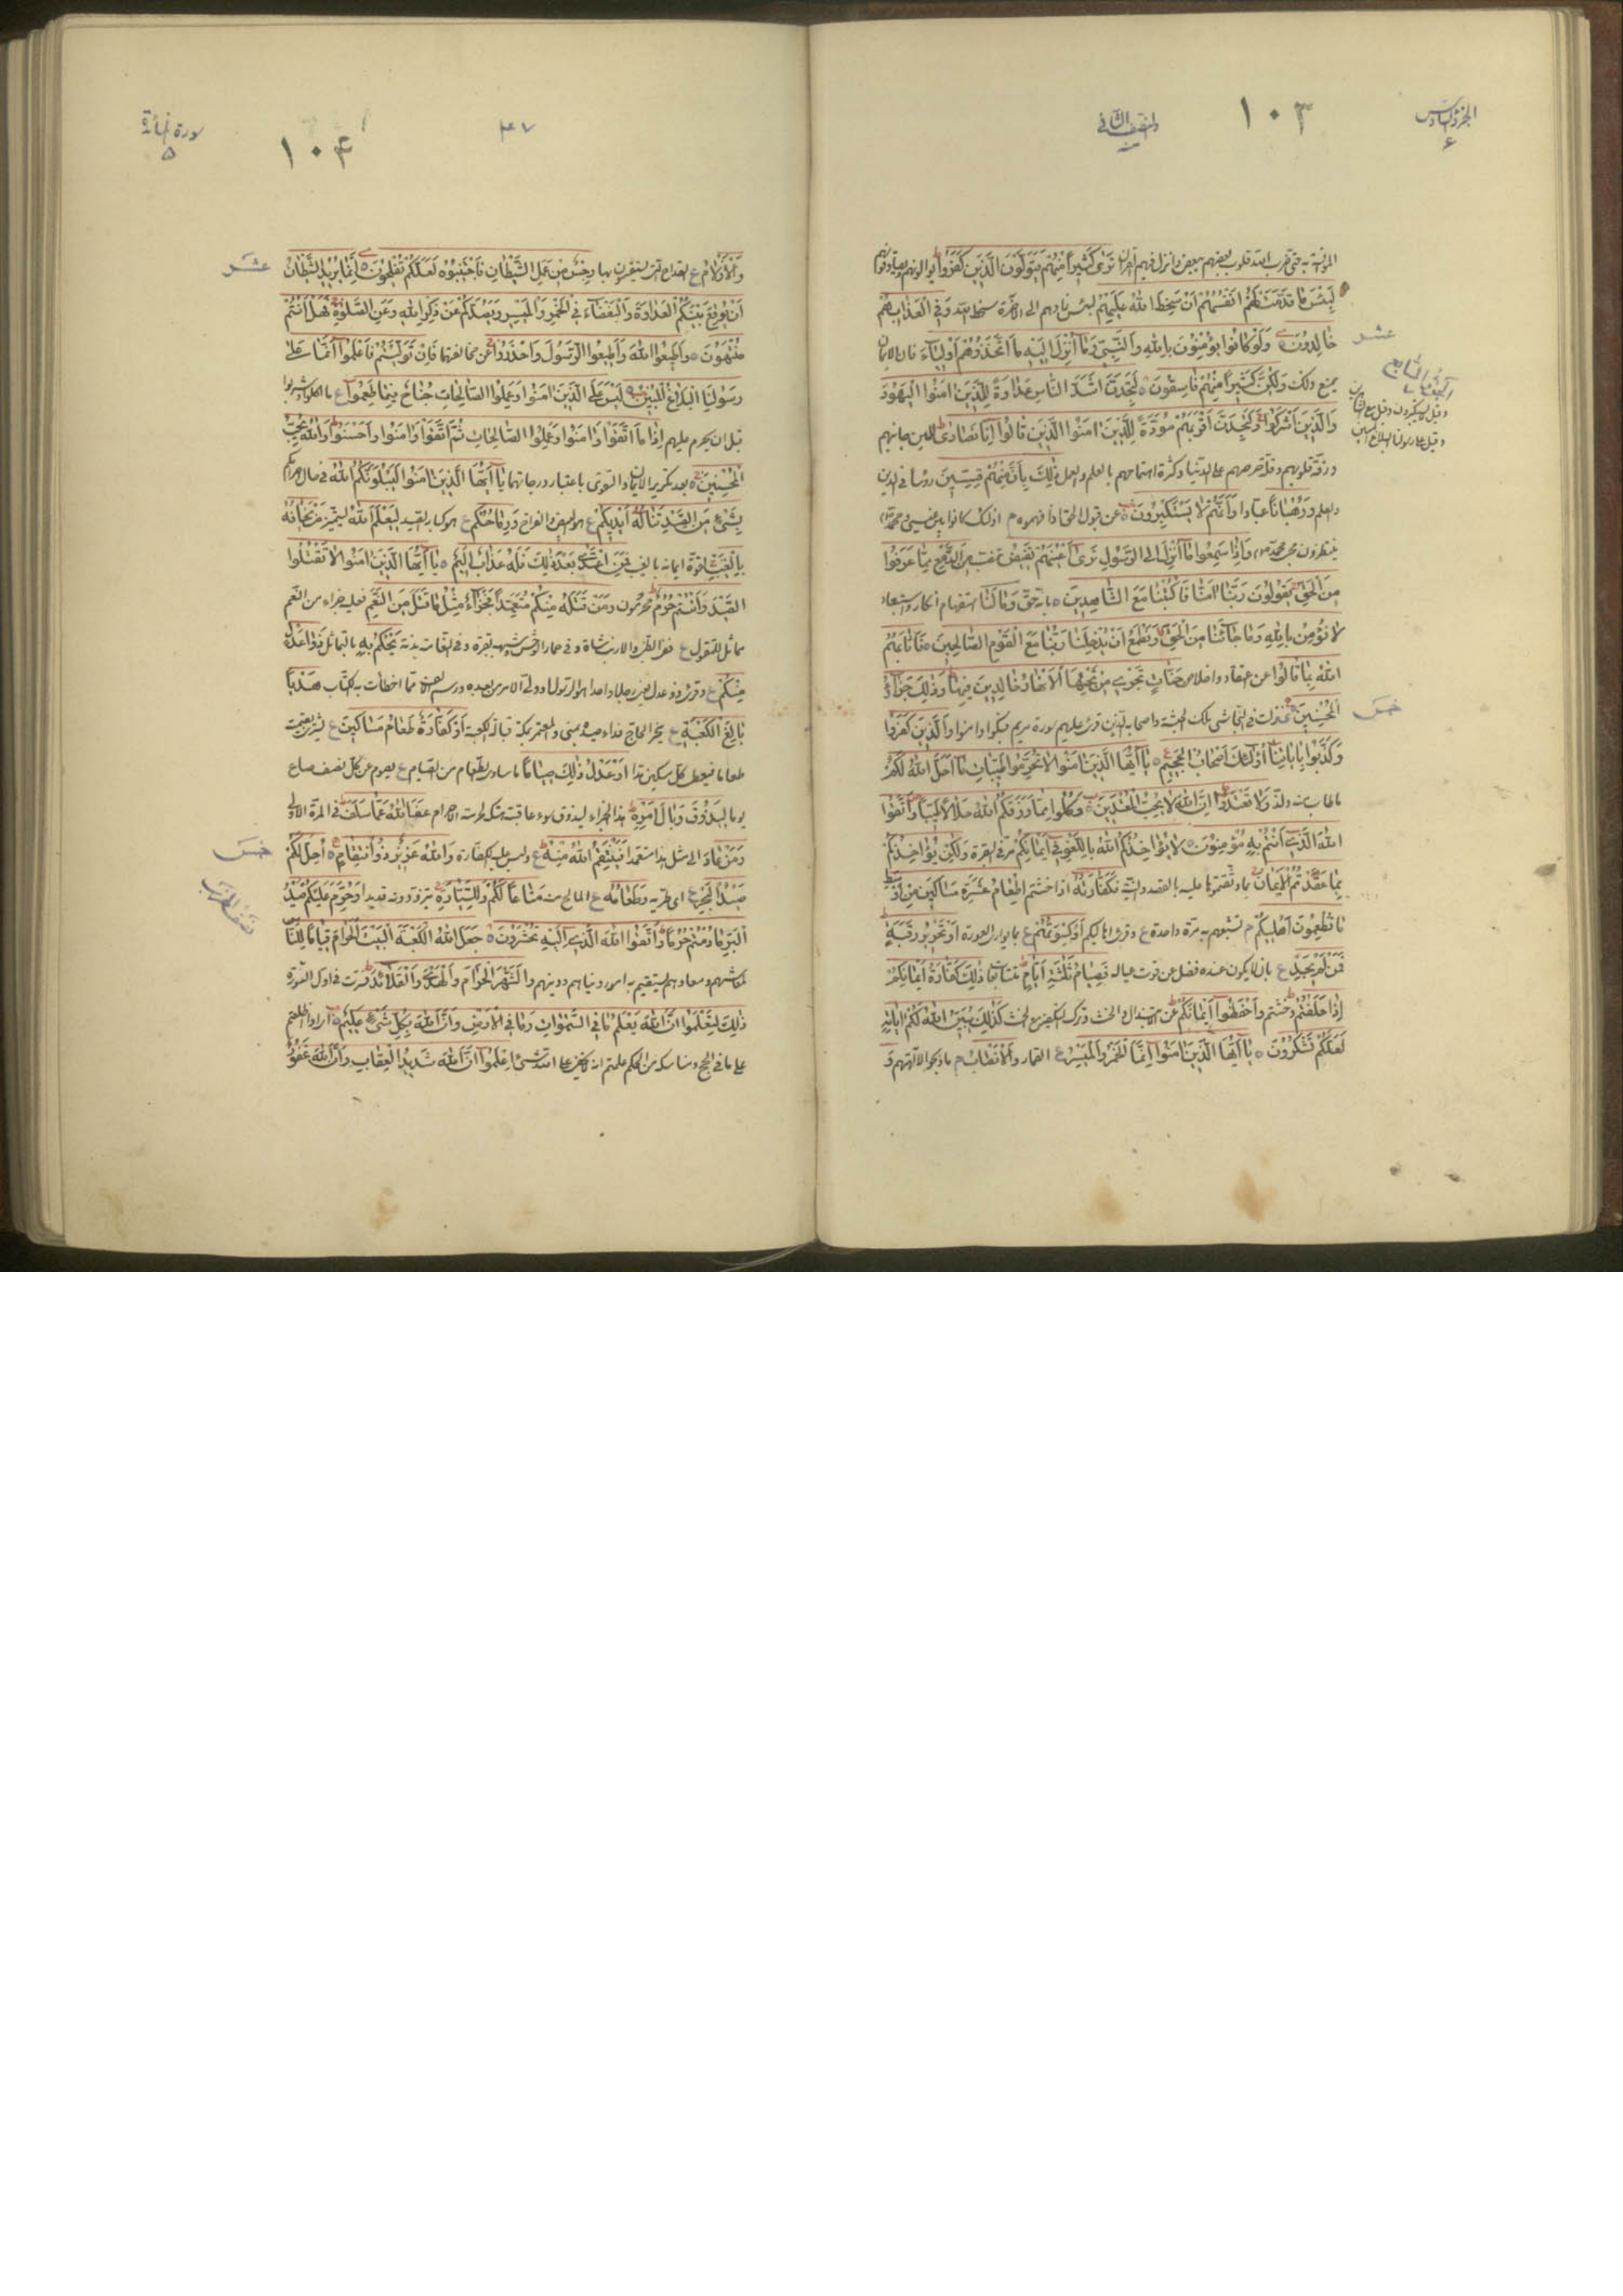 الجزء السادس
٦
١٠٣
والنصف الثاني
تَرٰى كَثِيرًا مِنْهُمْ يَتَوَلَّوْنَ الَّذِينَ كَفَرُوا
لَبِئْسَ مَا قَدَّمَتْ لَهُمْ اَنْفُسُهُمْ اَنْ سَخِطَ اللّٰهُ عَلَيْهِمْ لبئس زادهم الى الآخرة سخط الله وَفِي الْعَذَابِ هُمْ
عشر
خَالِدُونَ وَلَوْ كَانُوا يُؤْمِنُونَ بِاللّٰهِ وَالنَّبِيِّ وَمَا اُنْزِلَ اِلَيْهِ مَا اتَّخَذُوهُمْ اَوْلِيَاءَ فان الايمان
الجزء السابع
٧
يمنع ذلك وَلٰكِنَّ كَثِيرًا مِنْهُمْ فَاسِقُونَ لَتَجِدَنَّ اَشَدَّ النَّاسِ عَدَاوَةً لِلَّذِينَ اٰمَنُوا الْيَهُودَ
وَالَّذِينَ اَشْرَكُوا وَلَتَجِدَنَّ اَقْرَبَهُمْ مَوَدَّةً لِلَّذِينَ اٰمَنُوا الَّذِينَ قَالُوا اِنَّا نَصَارٰى للين جانبهم
ورقة قلوبهم وقلة حرصهم على الدنيا وكثرة اهتمامهم بالعلم والعمل ذٰلِكَ بِاَنَّ مِنْهُمْ قِسِّيسِينَ رؤسا في الدين
والعلم وَرُهْبَانًا عبادا وَاَنَّهُمْ لَا يَسْتَكْبِرُونَ عن قبول الحق اذا فهموه م اولئك كانوا بين عيسى ومحمد
ينتظرون مجئ محمد وَاِذَا سَمِعُوا مَا اُنْزِلَ اِلَى الرَّسُولِ تَرٰى اَعْيُنَهُمْ تَفِيضُ مِنَ الدَّمْعِ مِمَّا عَرَفُوا
مِنَ الْحَقِّ يَقُولُونَ رَبَّنَا اٰمَنَّا فَاكْتُبْنَا مَعَ الشَّاهِدِينَ بانه حق وَمَا لَنَا استفهام انكار واستبعاد
لَا نُؤْمِنُ بِاللّٰهِ وَمَا جَاءَنَا مِنَ الْحَقِّ وَنَطْمَعُ اَنْ يُدْخِلَنَا رَبُّنَا مَعَ الْقَوْمِ الصَّالِحِينَ فَاَثَابَهُمُ
اللّٰهُ بِمَا قَالُوا عن اعتقاد واخلاص جَنَّاتٍ تَجْرِي مِنْ تَحْتِهَا الْاَنْهَارُ خَالِدِينَ فِيهَا وَذٰلِكَ جَزَاءُ
خمس
الْمُحْسِنِينَ نزلت في النجاشي ملك الحبشة واصحابه الذين قرئ عليهم سورة مريم فبكوا وامنوا وَالَّذِينَ كَفَرُوا
وَكَذَّبُوا بِاٰيَاتِنَا اُولٰئِكَ اَصْحَابُ الْجَحِيمِ يَا اَيُّهَا الَّذِينَ اٰمَنُوا لَا تُحَرِّمُوا طَيِّبَاتِ مَا اَحَلَّ اللّٰهُ لَكُمْ
ما طاب منه ولذ وَلَا تَعْتَدُوا اِنَّ اللّٰهَ لَا يُحِبُّ الْمُعْتَدِينَ وَكُلُوا مِمَّا رَزَقَكُمُ اللّٰهُ حَلَالًا طَيِّبًا وَاتَّقُوا
اللّٰهَ الَّذِي اَنْتُمْ بِهِ مُؤْمِنُونَ لَا يُؤَاخِذُكُمُ اللّٰهُ بِاللَّغْوِ فِي اَيْمَانِكُمْ مر في البقرة وَلٰكِنْ يُؤَاخِذُكُمْ
بِمَا عَقَّدْتُمُ الْاَيْمَانَ بما وثقتموها عليه بالقصد والنية فَكَفَّارَتُهُ اذا حنثتم اِطْعَامُ عَشَرَةِ مَسَاكِينَ مِنْ اَوْسَطِ
مَا تُطْعِمُونَ اَهْلِيكُمْ م تشبعهم به مرة واحدة ع وقرئ اهاليكم اَوْ كِسْوَتُهُمْ ع بما يوارى العورة اَوْ تَحْرِيرُ رَقَبَةٍ
فَمَنْ لَمْ يَجِدْ ع بان لا يكون عنده فضل عن قوت عياله فَصِيَامُ ثَلٰثَةِ اَيَّامٍ متتابعات ذٰلِكَ كَفَّارَةُ اَيْمَانِكُمْ
اِذَا حَلَفْتُمْ وحنثتم وَاحْفَظُوا اَيْمَانَكُمْ عن الابتذال والحنث وترك التكفير مع الحنث كَذٰلِكَ يُبَيِّنُ اللّٰهُ لَكُمْ اٰيَاتِهِ
لَعَلَّكُمْ تَشْكُرُونَ يَا اَيُّهَا الَّذِينَ اٰمَنُوا اِنَّمَا الْخَمْرُ وَالْمَيْسِرُ ع القمار وَالْاَنْصَابُ م ما ذبحوا لآلهتهم وَ
سورة المائدة
٥
١٠٤
وَالْاَزْلَامُ ع القداح التي يستقسمون بها رِجْسٌ مِنْ عَمَلِ الشَّيْطَانِ فَاجْتَنِبُوهُ لَعَلَّكُمْ تُفْلِحُونَ اِنَّمَا يُرِيدُ الشَّيْطَانُ
عشر
اَنْ يُوقِعَ بَيْنَكُمُ الْعَدَاوَةَ وَالْبَغْضَاءَ فِي الْخَمْرِ وَالْمَيْسِرِ وَيَصُدَّكُمْ عَنْ ذِكْرِ اللّٰهِ وَعَنِ الصَّلٰوةِ فَهَلْ اَنْتُمْ
مُنْتَهُونَ وَاَطِيعُوا اللّٰهَ وَاَطِيعُوا الرَّسُولَ وَاحْذَرُوا عن مخالفتهما فَاِنْ تَوَلَّيْتُمْ فَاعْلَمُوا اَنَّمَا عَلٰى
رَسُولِنَا الْبَلَاغُ الْمُبِينُ لَيْسَ عَلَى الَّذِينَ اٰمَنُوا وَعَمِلُوا الصَّالِحَاتِ جُنَاحٌ فِيمَا طَعِمُوا ع ما اكلوا وشربوا
قبل ان يحرم عليهم اِذَا مَا اتَّقَوْا وَاٰمَنُوا وَعَمِلُوا الصَّالِحَاتِ ثُمَّ اتَّقَوْا وَاٰمَنُوا وَاَحْسَنُوا وَاللّٰهُ يُحِبُّ
الْمُحْسِنِينَ بعد تكرير الايمان والتقوى باعتبار درجاتهما يَا اَيُّهَا الَّذِينَ اٰمَنُوا لَيَبْلُوَنَّكُمُ اللّٰهُ في حال احرامكم
بِشَيْءٍ مِنَ الصَّيْدِ تَنَالُهُ اَيْدِيكُمْ ع البيض والفراخ وَرِمَاحُكُمْ ع كبار الصيد لِيَعْلَمَ اللّٰهُ ليتميز مَنْ يَخَافُهُ
بِالْغَيْبِ لقوة ايمانه بالغيب فَمَنِ اعْتَدٰى بَعْدَ ذٰلِكَ فَلَهُ عَذَابٌ اَلِيمٌ يَا اَيُّهَا الَّذِينَ اٰمَنُوا لَا تَقْتُلُوا
الصَّيْدَ وَاَنْتُمْ حُرُمٌ محرمون وَمَنْ قَتَلَهُ مِنْكُمْ مُتَعَمِّدًا فَجَزَاءٌ مِثْلُ مَا قَتَلَ مِنَ النَّعَمِ فعليه جزاء من النعم
مماثل للمقتول ع ففي الظبى والارنب شاة وفي حمار الوحش وشبهه بقرة وفي النعامة بدنة يَحْكُمُ بِهِ بالتماثل ذَوَا عَدْلٍ
مِنْكُمْ ع وقرئ ذو عدل هَدْيًا
بَالِغَ الْكَعْبَةِ ع اَوْ كَفَّارَةٌ طَعَامُ مَسَاكِينَ ع
طعاما فيعطى كل مسكين مدا اَوْ عَدْلُ ذٰلِكَ صِيَامًا ما ساوى الطعام من الصيام ع يصوم عن كل نصف صاع
يوما لِيَذُوقَ وَبَالَ اَمْرِهِ هذا الجزاء ليذوق سوء عاقبة هتكه لحرمة الاحرام عَفَا اللّٰهُ عَمَّا سَلَفَ في المرة الاولى
خمس
وَمَنْ عَادَ الى مثل هذا متعمدا فَيَنْتَقِمُ اللّٰهُ مِنْهُ ع وليس عليه الكفارة وَاللّٰهُ عَزِيزٌ ذُو انْتِقَامٍ اُحِلَّ لَكُمْ
صَيْدُ الْبَحْرِ ع اى طريه وَطَعَامُهُ ع المالح منه مَتَاعًا لَكُمْ وَلِلسَّيَّارَةِ يتزودونه قديدا وَحُرِّمَ عَلَيْكُمْ صَيْدُ
الْبَرِّ مَا دُمْتُمْ حُرُمًا وَاتَّقُوا اللّٰهَ الَّذِي اِلَيْهِ تُحْشَرُونَ جَعَلَ اللّٰهُ الْكَعْبَةَ الْبَيْتَ الْحَرَامَ قِيَامًا لِلنَّاسِ
لمعاشهم ومعادهم يستقيم به امور دنياهم ودينهم وَالشَّهْرَ الْحَرَامَ وَالْهَدْيَ وَالْقَلَائِدَ فسرت في اول السورة
ذٰلِكَ لِتَعْلَمُوا اَنَّ اللّٰهَ يَعْلَمُ مَا فِي السَّمٰوَاتِ وَمَا فِي الْاَرْضِ وَاَنَّ اللّٰهَ بِكُلِّ شَيْءٍ عَلِيمٌ
على ما في الحج ومناسكه من الحكم علمتم انه لا يخفى على الله شئ اِعْلَمُوا اَنَّ اللّٰهَ شَدِيدُ الْعِقَابِ وَاَنَّ اللّٰهَ غَفُورٌ